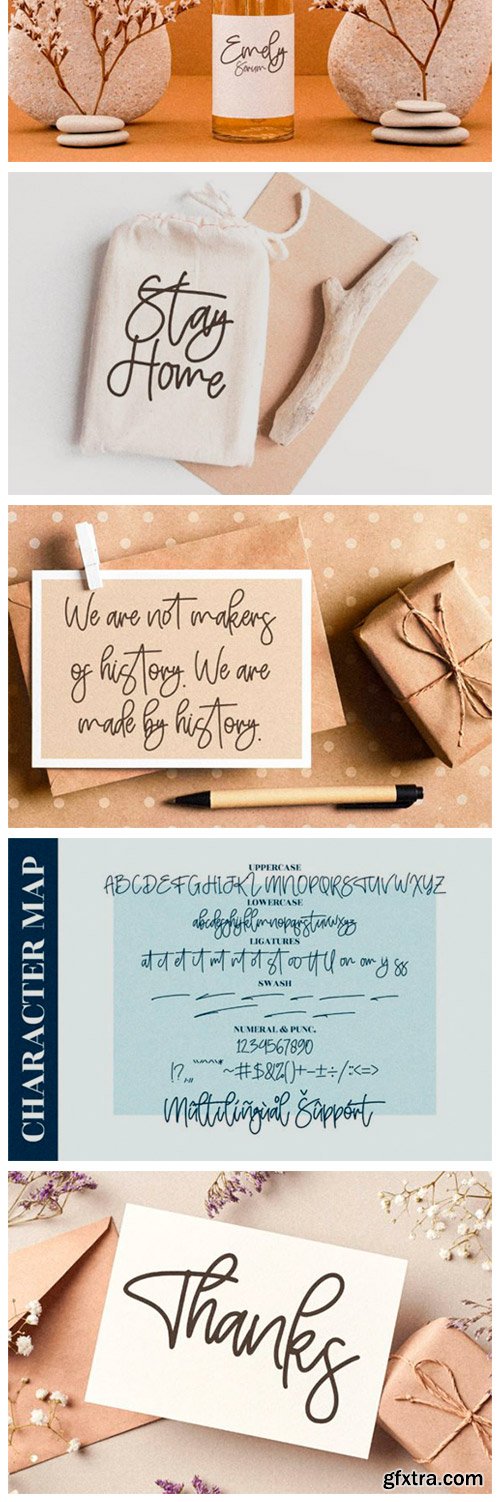 Emely
Serum
Stay
Home
We are not makers
of history. We are
made by history.
CHARACTER MAP
UPPERCASE
ABCDEFGHIJKLMNOPQRSTUVWXYZ
LOWERCASE
abcdefghijklmnopqrstuvwxyz
LIGATURES
at ct et it mt nt ot st oo tt ll on om y ss
SWASH
NUMERAL & PUNC.
1234567890
Mûltilîñgùål Šûppört
Thanks
gfxtra.com